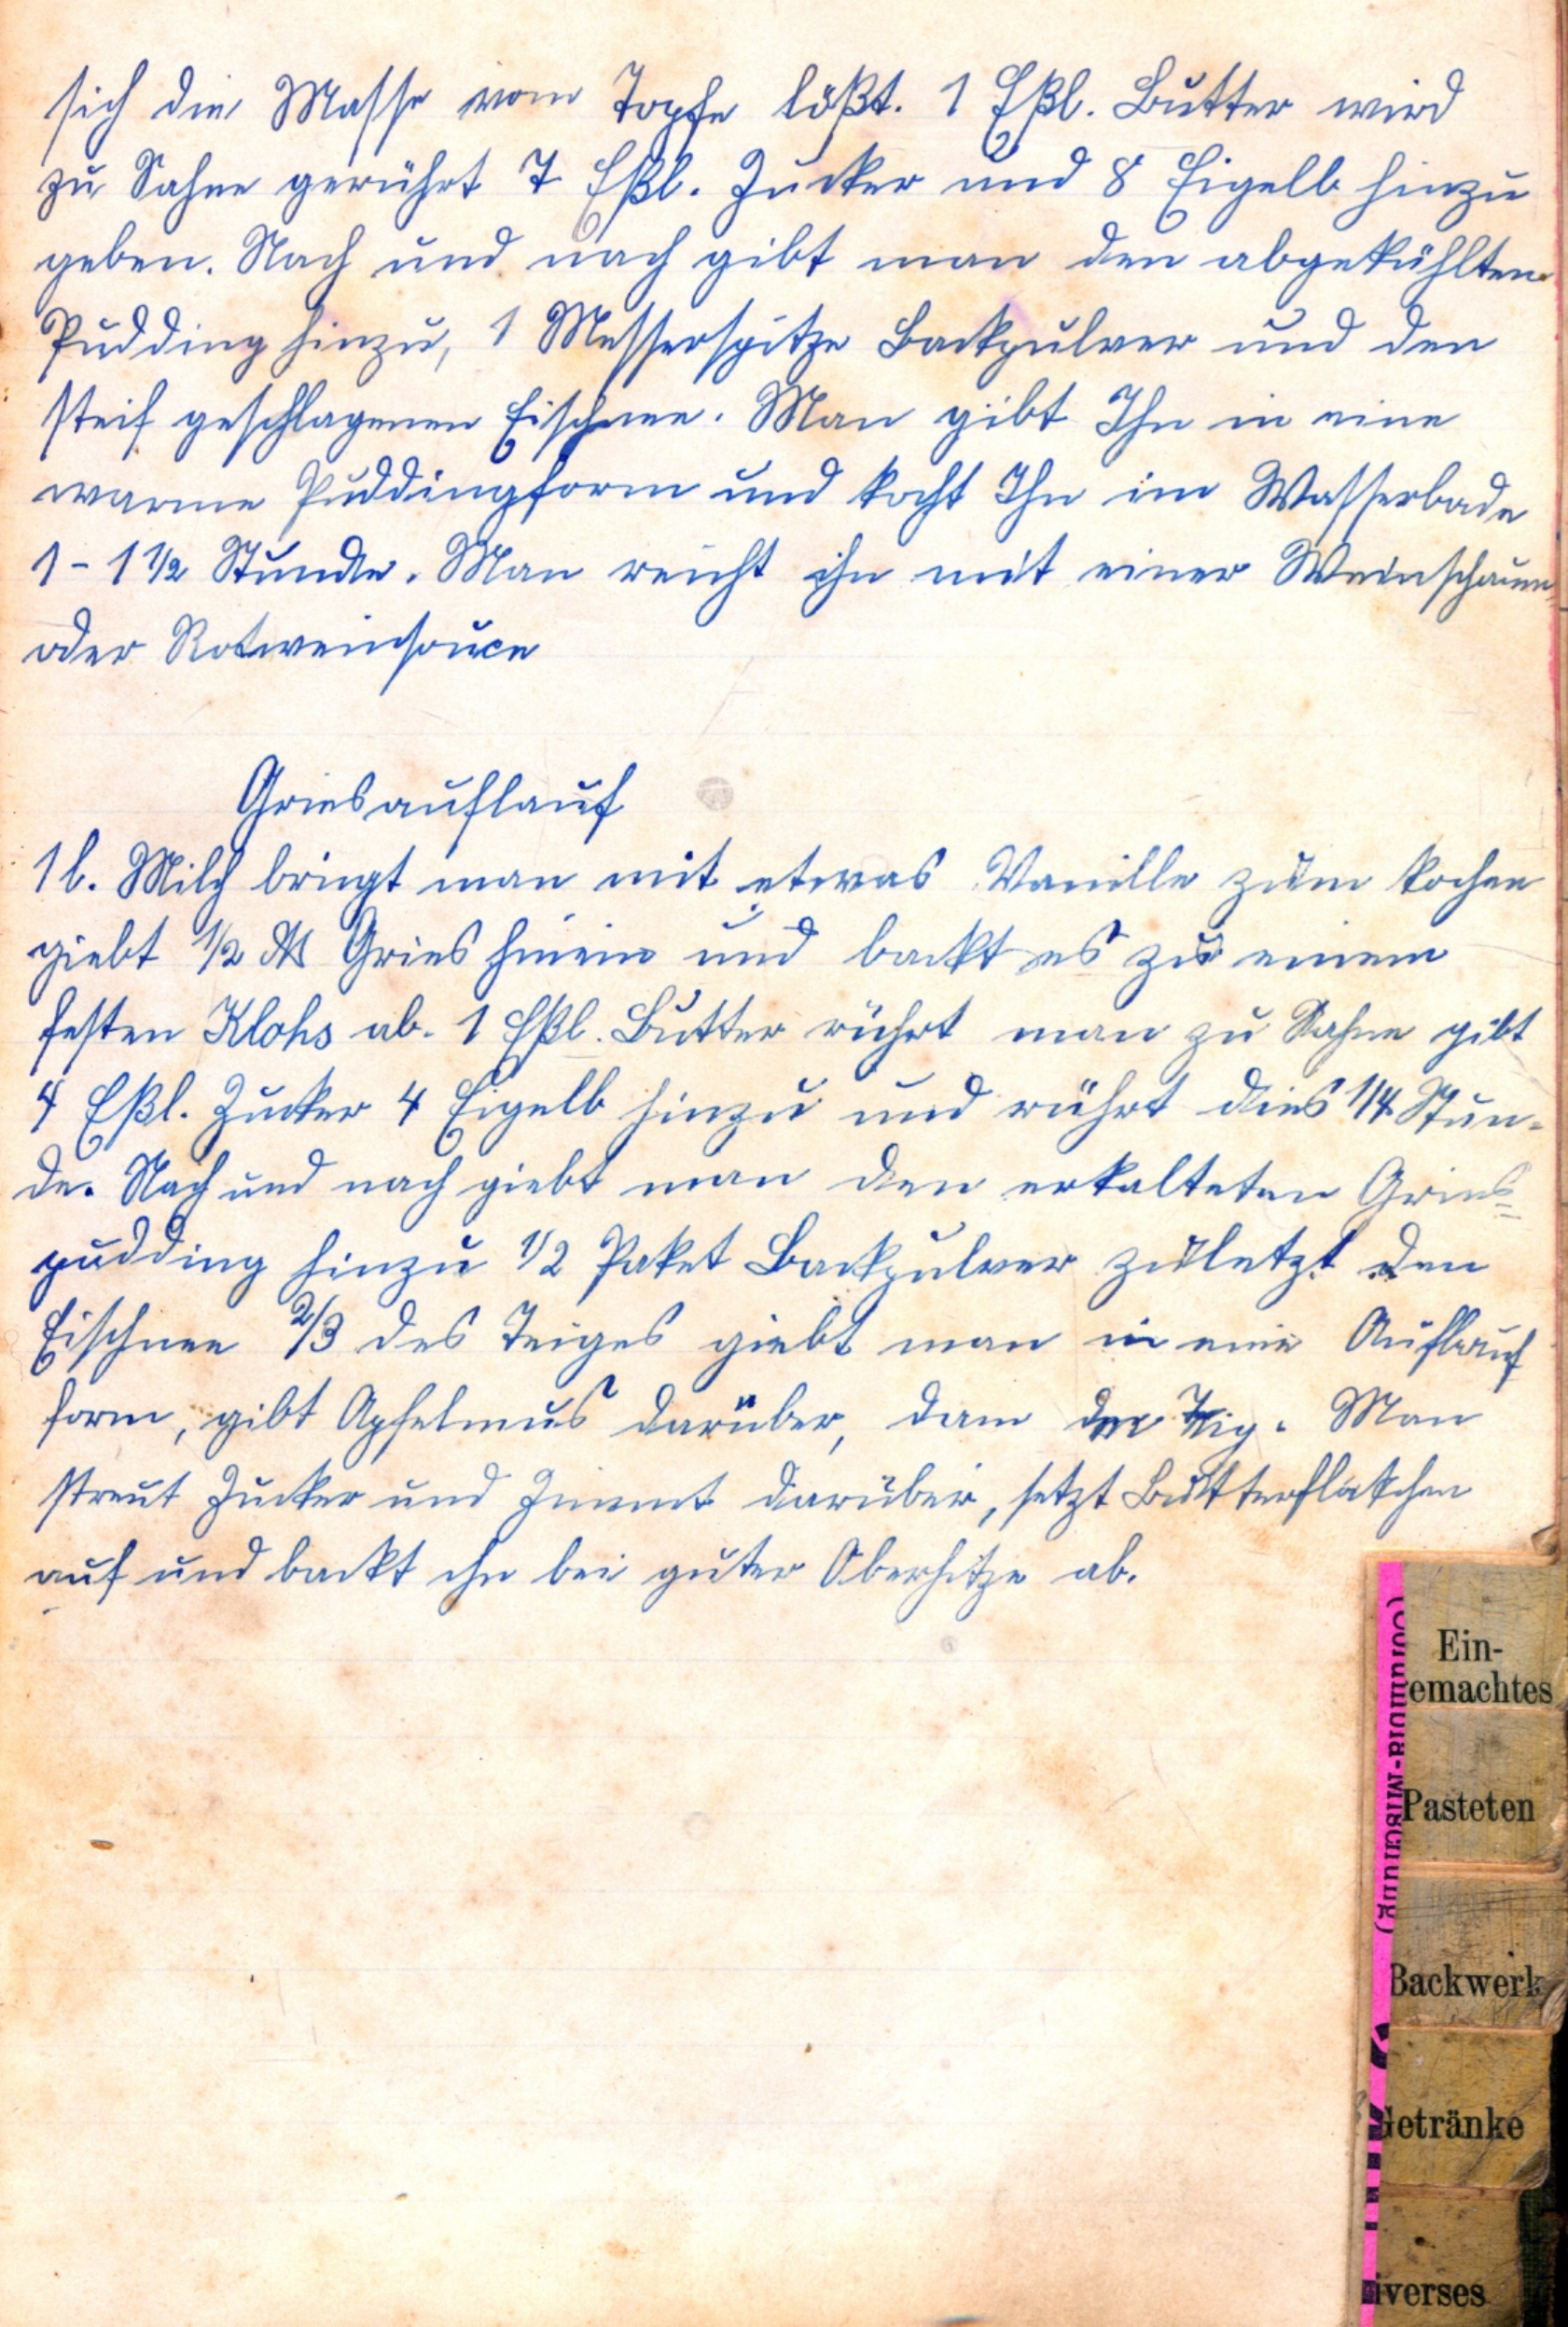 sich die Masse vom Topfe lößt. 1 Eßl. Butter wird
zu Sahne gerührt 7 Eßl. Zucker und 8 Eigelb hinzu
geben. Nach und nach gibt man den abgekühlten
Pudding hinzu, 1 Messerspitze Backpulver und den
steif geschlagenen Eischnee. Man gibt Ihn in eine
warme Puddingform und kocht Ihn im Wasserbade
1 - 1 1/2 Stunde. Man reicht ihn mit einer Weinschaum
oder Rotweinsouce
Griesauflauf
1 l. Milch bringt man mit etwas Vanille zum kochen
giebt 1/2 ℔ Gries hinein und backt es zu einem
festen Klohs ab. 1 Eßl. Butter rührt man zu Sahne gibt
4 Eßl. Zucker 4 Eigelb hinzu und rührt dies 1/4 Stun-
de. Nach und nach giebt man den erkalteten Gries=
pudding hinzu 1/2 Paket Backpulver zuletzt den
Eischnee 2/3 des Teiges giebt man in eine Auflauf
form, gibt Apfelmus darüber, dann der Teig. Man
streut Zucker und Zimmt darüber, setzt Butterflöckchen
auf und backt ihn bei guter Oberhitze ab.
Ein-
emachtes
Pasteten
Backwerk
Getränke
iverses